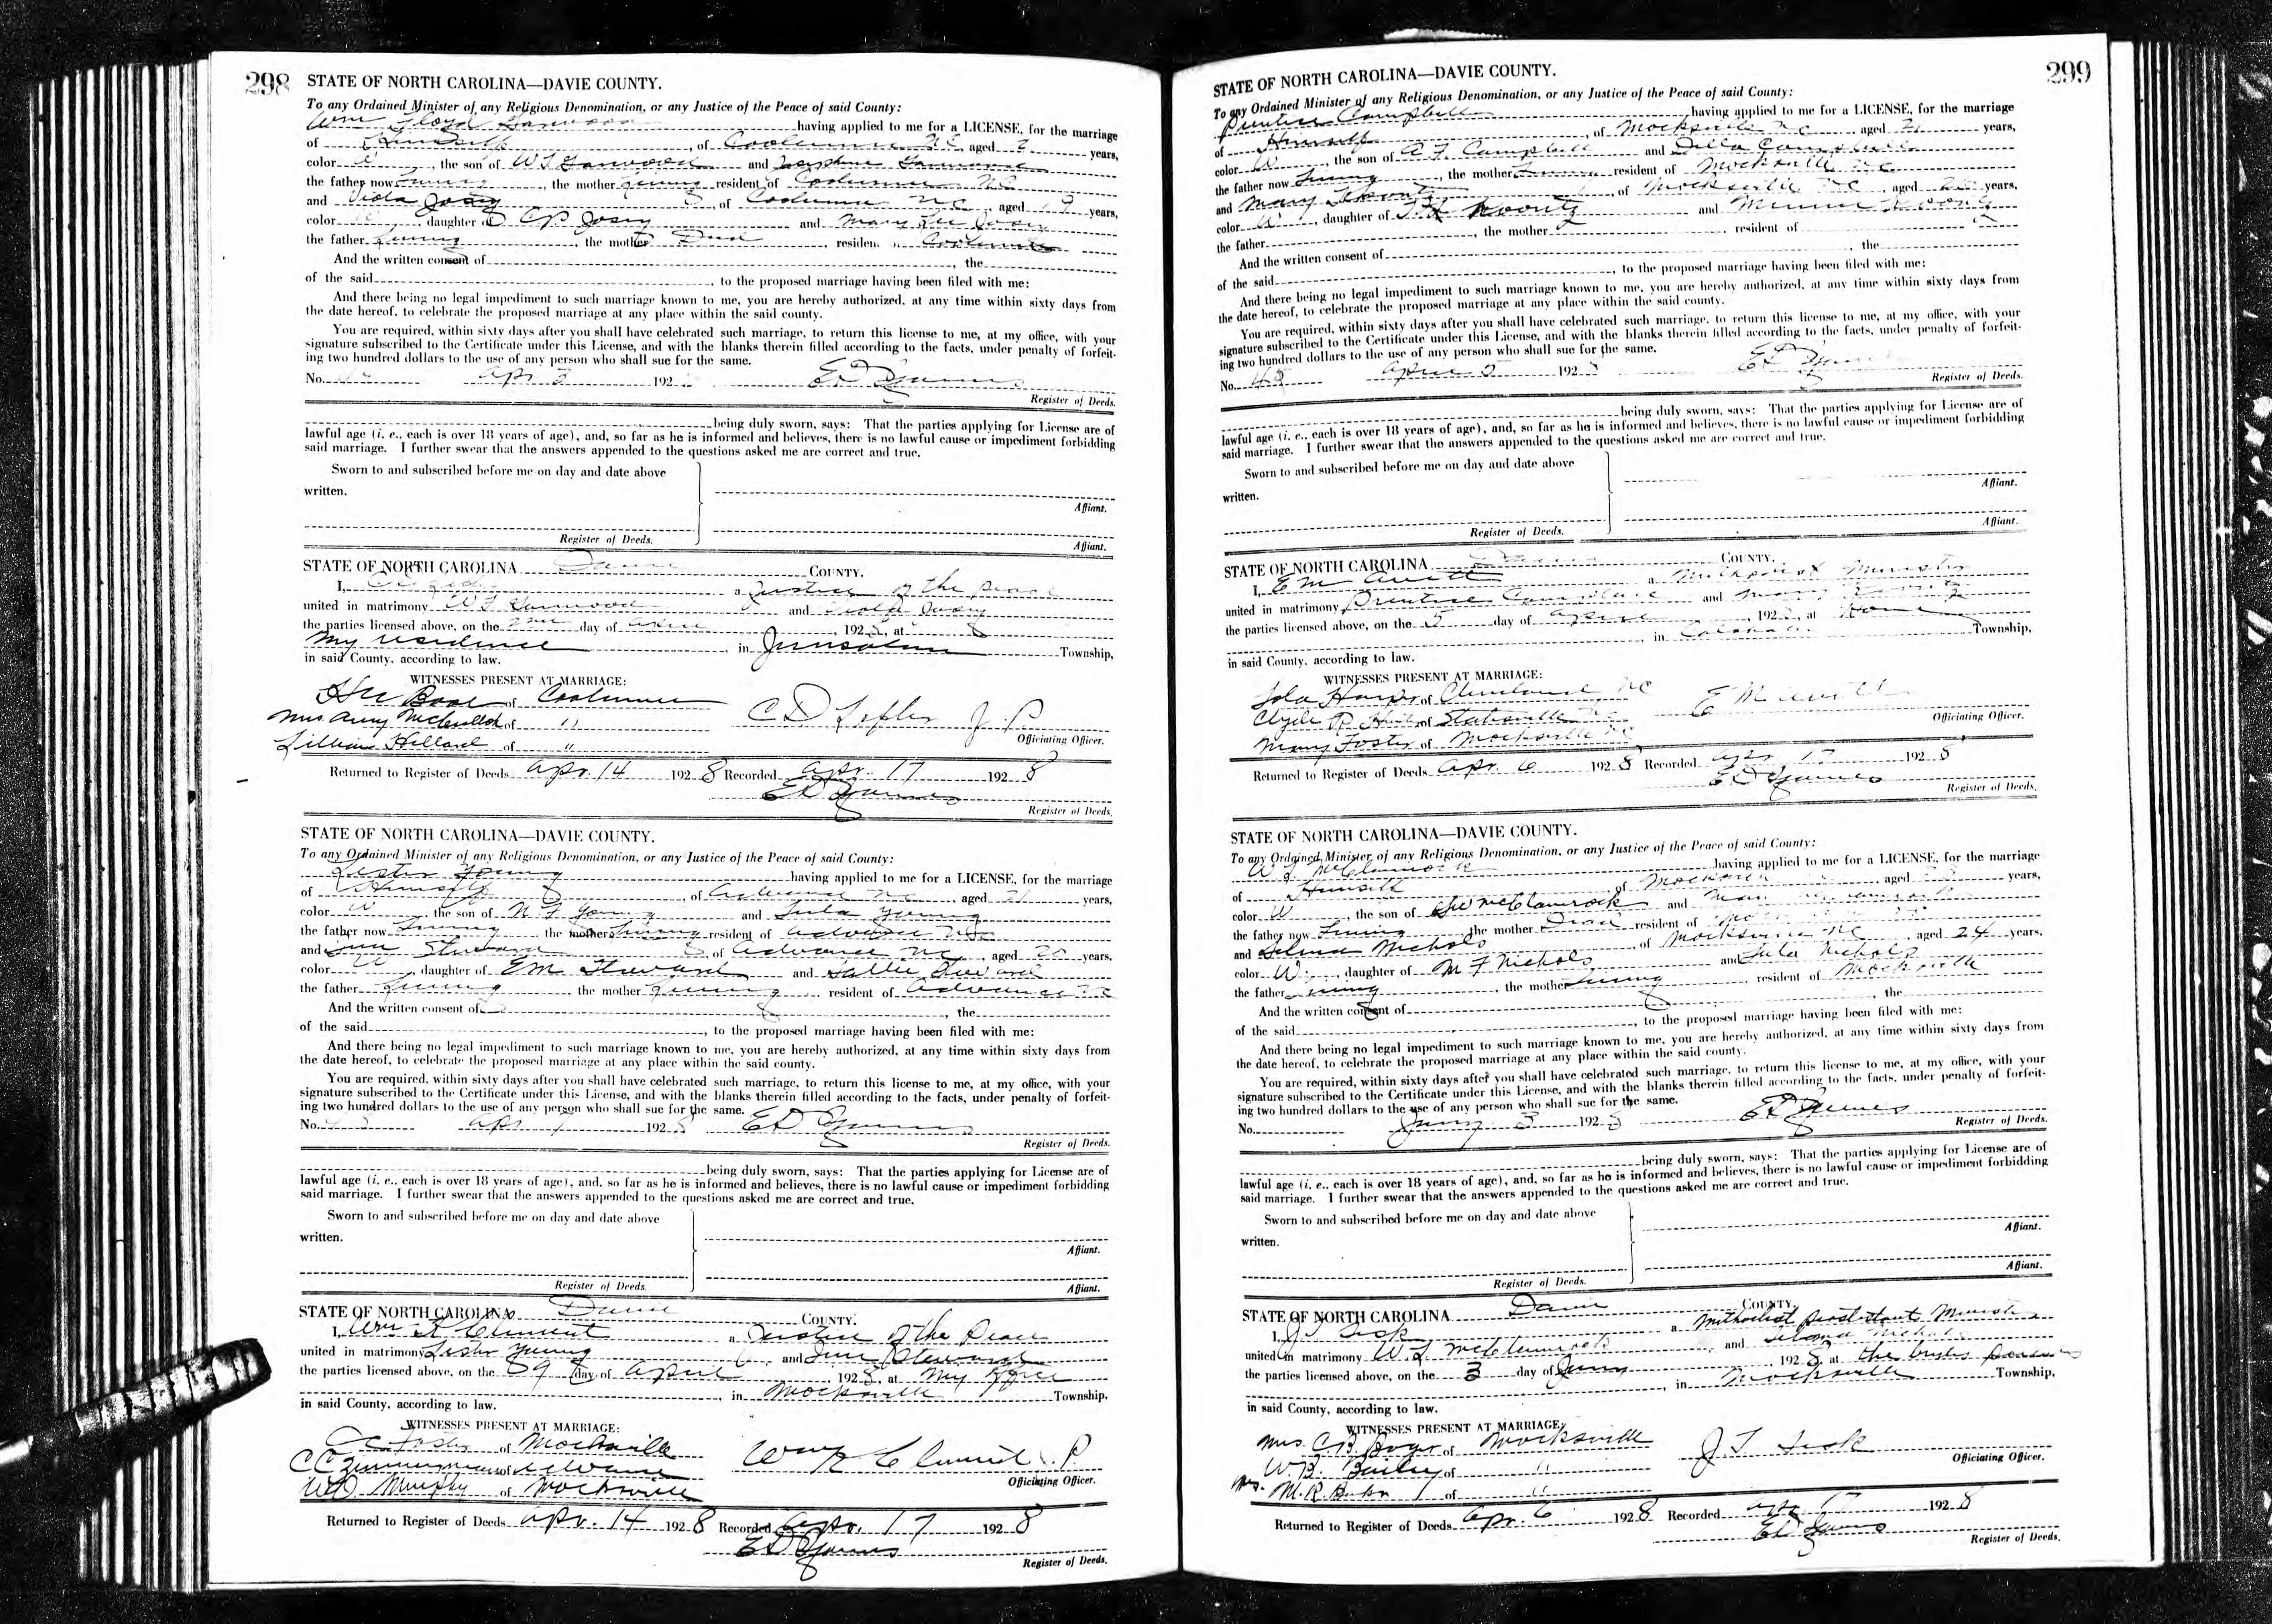 298
STATE OF NORTH CAROLINA—DAVIE COUNTY.
To any Ordained Minister of any Religious Denomination, or any Justice of the Peace of said County:
Wm Floyd having applied to me for a LICENSE, for the marriage
of Himself, of Cooleemee NC, aged years,
color W, the son of and
the father now Living, the mother Living resident of Cooleemee NC
and Viola Josey, of Cooleemee NC, aged 19 years,
color, daughter of C P Josey and Mary Lee Josey
the father Living, the mother Dead, resident of Cooleemee
And the written consent of, the
of the said, to the proposed marriage having been filed with me:
And there being no legal impediment to such marriage known to me, you are hereby authorized, at any time within sixty days from
the date hereof, to celebrate the proposed marriage at any place within the said county.
You are required, within sixty days after you shall have celebrated such marriage, to return this license to me, at my office, with your
signature subscribed to the Certificate under this License, and with the blanks therein filled according to the facts, under penalty of forfeit-
ing two hundred dollars to the use of any person who shall sue for the same.
No. Apr 3 192
Register of Deeds.
being duly sworn, says: That the parties applying for License are of
lawful age (i. e., each is over 18 years of age), and, so far as he is informed and believes, there is no lawful cause or impediment forbidding
said marriage. I further swear that the answers appended to the questions asked me are correct and true.
Sworn to and subscribed before me on day and date above
written.
Affiant.
Register of Deeds.
Affiant.
STATE OF NORTH CAROLINA Davie COUNTY.
I, a Justice of the peace
united in matrimony and Viola Josey
the parties licensed above, on the day of April, 1928, at
my residence in Jerusalem Township,
in said County, according to law.
WITNESSES PRESENT AT MARRIAGE:
of Cooleemee
Mrs of "
Lillian of "
C D J. P.
Officiating Officer.
Returned to Register of Deeds Apr. 14 1928 Recorded Apr. 17 1928
Register of Deeds.
STATE OF NORTH CAROLINA—DAVIE COUNTY.
To any Ordained Minister of any Religious Denomination, or any Justice of the Peace of said County:
Lester Young having applied to me for a LICENSE, for the marriage
of Himself, of Advance NC, aged 21 years,
color W, the son of N F Young and Lula Young
the father now Living, the mother Living resident of Advance NC
and of Advance NC, aged 20 years,
color W, daughter of E M and Sallie
the father Living, the mother Living, resident of Advance NC
And the written consent of, the
of the said, to the proposed marriage having been filed with me:
And there being no legal impediment to such marriage known to me, you are hereby authorized, at any time within sixty days from
the date hereof, to celebrate the proposed marriage at any place within the said county.
You are required, within sixty days after you shall have celebrated such marriage, to return this license to me, at my office, with your
signature subscribed to the Certificate under this License, and with the blanks therein filled according to the facts, under penalty of forfeit-
ing two hundred dollars to the use of any person who shall sue for the same.
No. Apr 7 1928
Register of Deeds.
being duly sworn, says: That the parties applying for License are of
lawful age (i. e., each is over 18 years of age), and, so far as he is informed and believes, there is no lawful cause or impediment forbidding
said marriage. I further swear that the answers appended to the questions asked me are correct and true.
Sworn to and subscribed before me on day and date above
written.
Affiant.
Register of Deeds.
Affiant.
STATE OF NORTH CAROLINA Davie COUNTY.
I, Wm K Clement a Justice of the Peace
united in matrimony Lester Young and
the parties licensed above, on the day of April, 1928, at my office
in Mocksville Township,
in said County, according to law.
WITNESSES PRESENT AT MARRIAGE:
Foster of Mocksville
C C Zimmerman of Advance
Murphy of Mocksville
Wm K Clement J. P.
Officiating Officer.
Returned to Register of Deeds Apr. 14 1928 Recorded Apr. 17 1928
Register of Deeds.
299
STATE OF NORTH CAROLINA—DAVIE COUNTY.
To any Ordained Minister of any Religious Denomination, or any Justice of the Peace of said County:
Prentice Campbell having applied to me for a LICENSE, for the marriage
of Himself, of Mocksville NC aged years,
color W, the son of A F Campbell and Della Campbell
the father now Living, the mother Living resident of Mocksville NC
and Mary Koontz, of Mocksville NC, aged years,
color W, daughter of Koontz and Minnie Koontz
the father, the mother, resident of
And the written consent of, the
of the said, to the proposed marriage having been filed with me:
And there being no legal impediment to such marriage known to me, you are hereby authorized, at any time within sixty days from
the date hereof, to celebrate the proposed marriage at any place within the said county.
You are required, within sixty days after you shall have celebrated such marriage, to return this license to me, at my office, with your
signature subscribed to the Certificate under this License, and with the blanks therein filled according to the facts, under penalty of forfeit-
ing two hundred dollars to the use of any person who shall sue for the same.
No. April 5 192
Register of Deeds.
being duly sworn, says: That the parties applying for License are of
lawful age (i. e., each is over 18 years of age), and, so far as he is informed and believes, there is no lawful cause or impediment forbidding
said marriage. I further swear that the answers appended to the questions asked me are correct and true.
Sworn to and subscribed before me on day and date above
written.
Affiant.
Register of Deeds.
Affiant.
STATE OF NORTH CAROLINA Davie COUNTY.
I, E M Avett a Methodist Minister
united in matrimony Prentice Campbell and Mary Koontz
the parties licensed above, on the 5 day of April, 192, at Home
in Calahaln Township,
in said County, according to law.
WITNESSES PRESENT AT MARRIAGE:
Iola of Cleveland NC
Clyde R of Statesville NC
Mary Foster of Mocksville NC
E M Avett
Officiating Officer.
Returned to Register of Deeds Apr. 6 1928 Recorded Apr 17 1928
Register of Deeds.
STATE OF NORTH CAROLINA—DAVIE COUNTY.
To any Ordained Minister of any Religious Denomination, or any Justice of the Peace of said County:
W L McClamrock having applied to me for a LICENSE, for the marriage
of Himself of Mocksville aged years,
color W, the son of McClamrock and
the father now Living the mother Dead resident of
and Selma Nichols, of Mocksville NC, aged 24 years,
color W, daughter of M F Nichols and Lula Nichols
the father Living, the mother Living, resident of Mocksville
And the written consent of, the
of the said, to the proposed marriage having been filed with me:
And there being no legal impediment to such marriage known to me, you are hereby authorized, at any time within sixty days from
the date hereof, to celebrate the proposed marriage at any place within the said county.
You are required, within sixty days after you shall have celebrated such marriage, to return this license to me, at my office, with your
signature subscribed to the Certificate under this License, and with the blanks therein filled according to the facts, under penalty of forfeit-
ing two hundred dollars to the use of any person who shall sue for the same.
No. 3 192
Register of Deeds.
being duly sworn, says: That the parties applying for License are of
lawful age (i. e., each is over 18 years of age), and, so far as he is informed and believes, there is no lawful cause or impediment forbidding
said marriage. I further swear that the answers appended to the questions asked me are correct and true.
Sworn to and subscribed before me on day and date above
written.
Affiant.
Register of Deeds.
Affiant.
STATE OF NORTH CAROLINA Davie COUNTY.
I, J T Sisk a Methodist Protestant Minister
united in matrimony W L McClamrock and Selma Nichols
the parties licensed above, on the 3 day of, 1928, at the brides
in Mocksville Township,
in said County, according to law.
WITNESSES PRESENT AT MARRIAGE:
Mrs. C. B. of Mocksville
W. B. Bailey of "
Mrs. M. R. of "
J. T. Sisk
Officiating Officer.
Returned to Register of Deeds Apr. 6 1928 Recorded 17 1928
Register of Deeds.